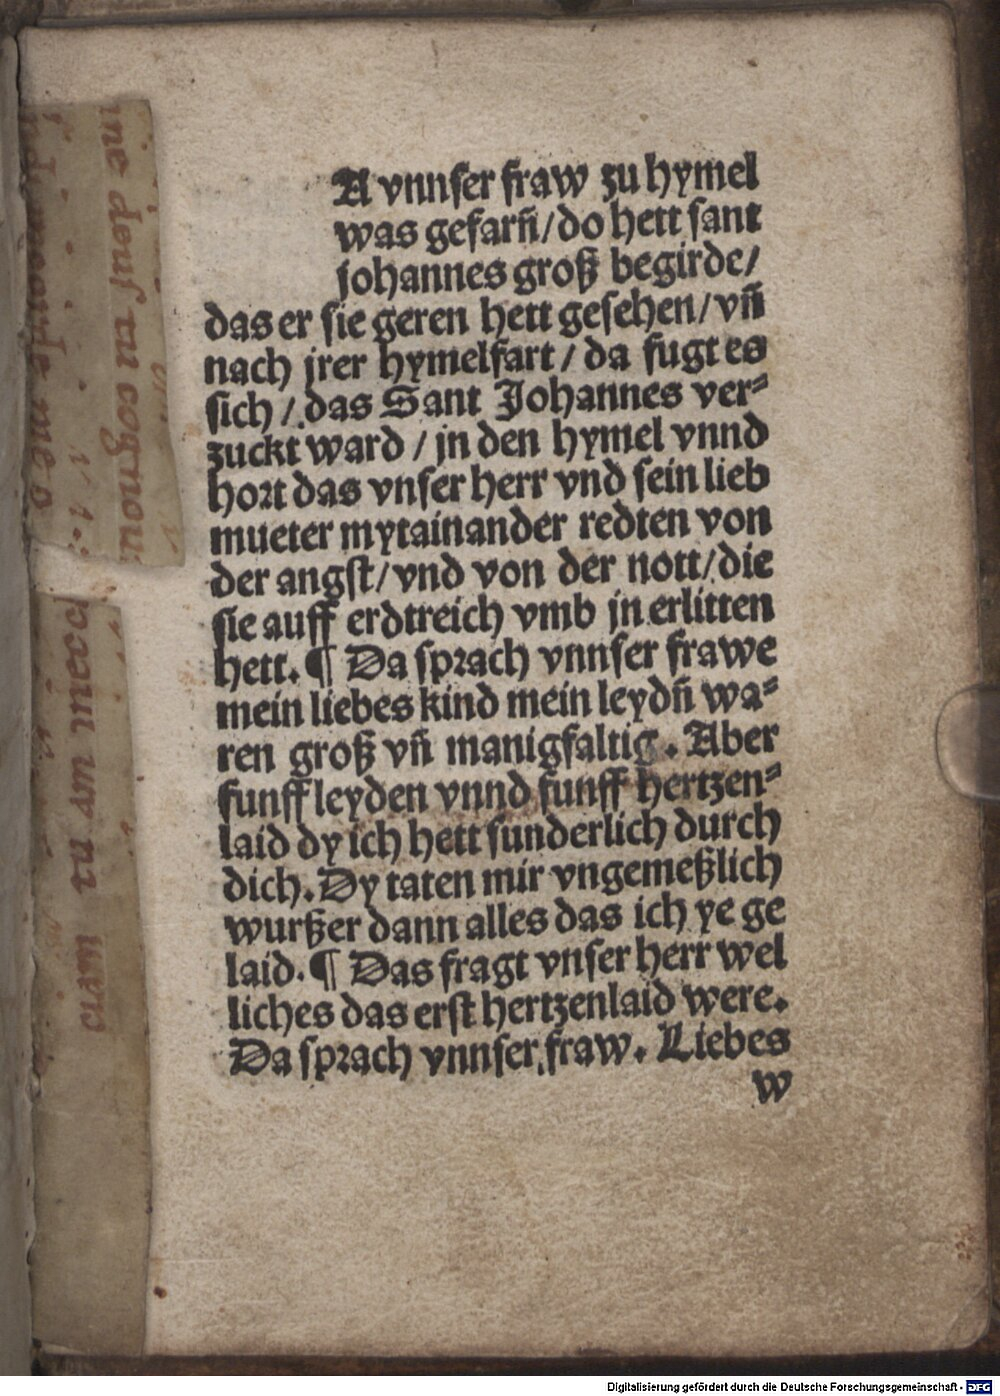 A vnnser fraw zu hymel
was gefarñ/do hett sant
johannes groß begirde/
das er sie geren hett gesehen/vñ
nach jrer hymelfart/da fugt es
sich/.das Sant Johannes ver⸗
zuckt ward/jn den hymel vnnd
hort das vnser herr vnd sein lieb
mueter mytainander redten von
der angst/vnd von der nott/die
sie auff erdtreich vmb jn erlitten
hett.¶ Da sprach vnnser frawe
mein liebes kind mein leydñ wa⸗
ren groß vñ manigfaltig. Aber
funff leyden vnnd funff hertzen⸗
laid dy ich hett sunderlich durch
dich.Dy taten mir vngemeßlich
wurßer dann alles das ich ye ge
laid.¶ Das fragt vnser herr wel
liches das erst hertzenlaid were.
Da sprach vnnser fraw. Liebes
w
Digitalisierung gefördert durch die Deutsche Forschungsgemeinschaft - DFG